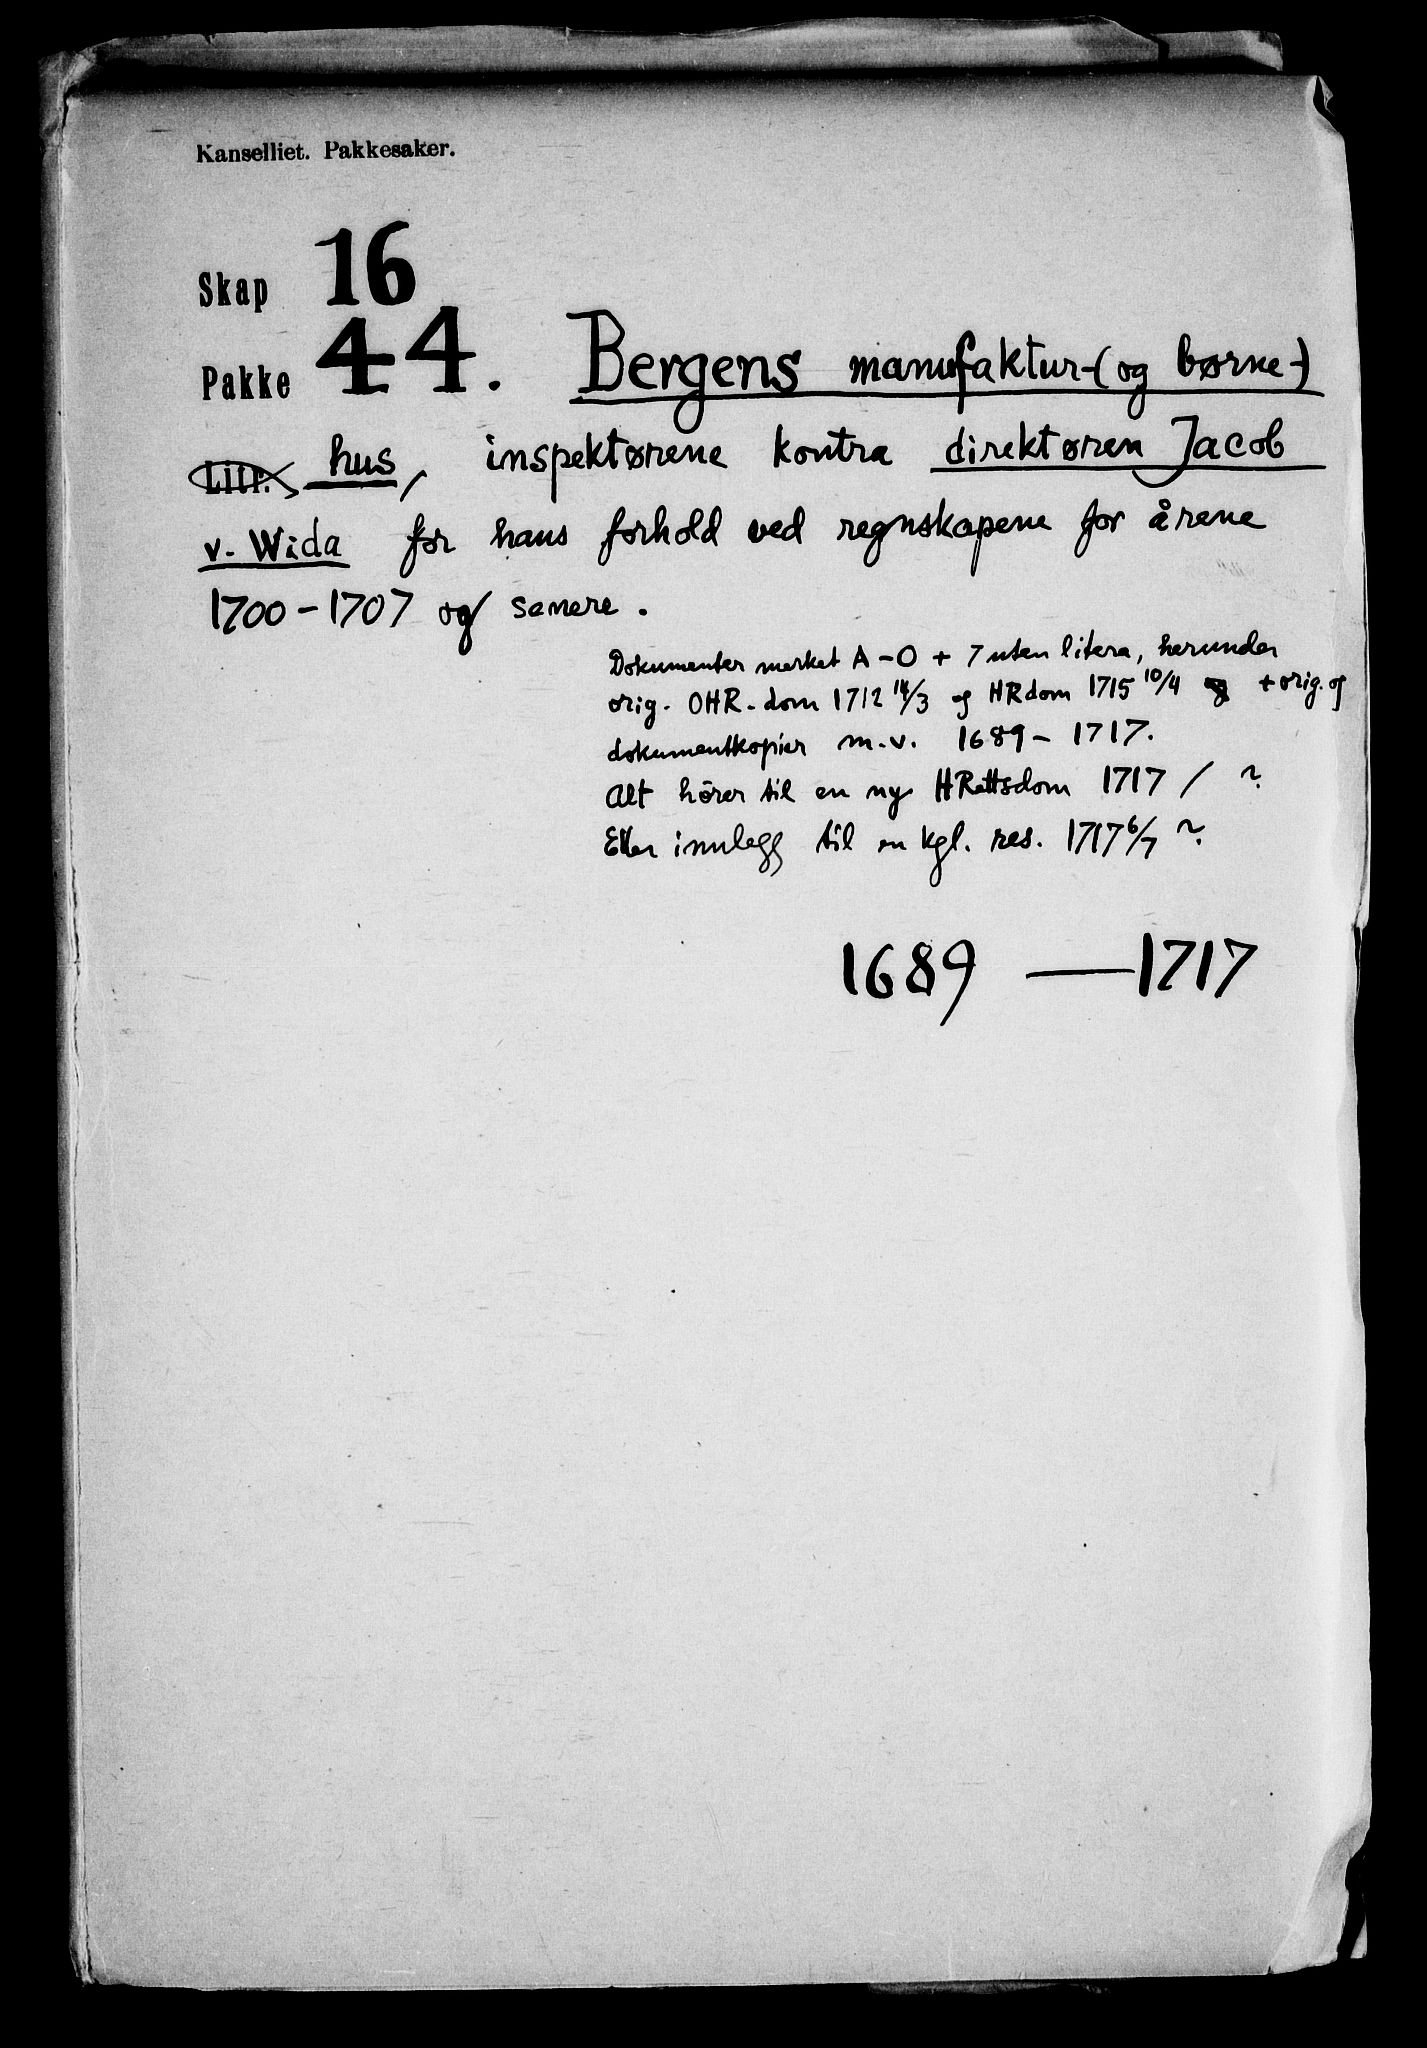 Kanselliet. Pakkesaker.
Skap 16
Pakke 44. Bergens manufaktur-(og børne-)
Litr. hus, inspektørene kontra direktøren Jacob
v. Wida for hans forhold ved regnskapene for årene
1700-1707 og senere.
Dokumenter merket A-O + 7 uten litera, herunder
orig. OHR.dom 1712 14/3 og HRdom 1715 10/4 + orig. og
dokumentkopier m.v. 1689- 1717.
Alt hører til en ny HRettsdom 1717 / ?
Eller innlegg til en kgl. res. 1717 6/7 ?
1689 — 1717